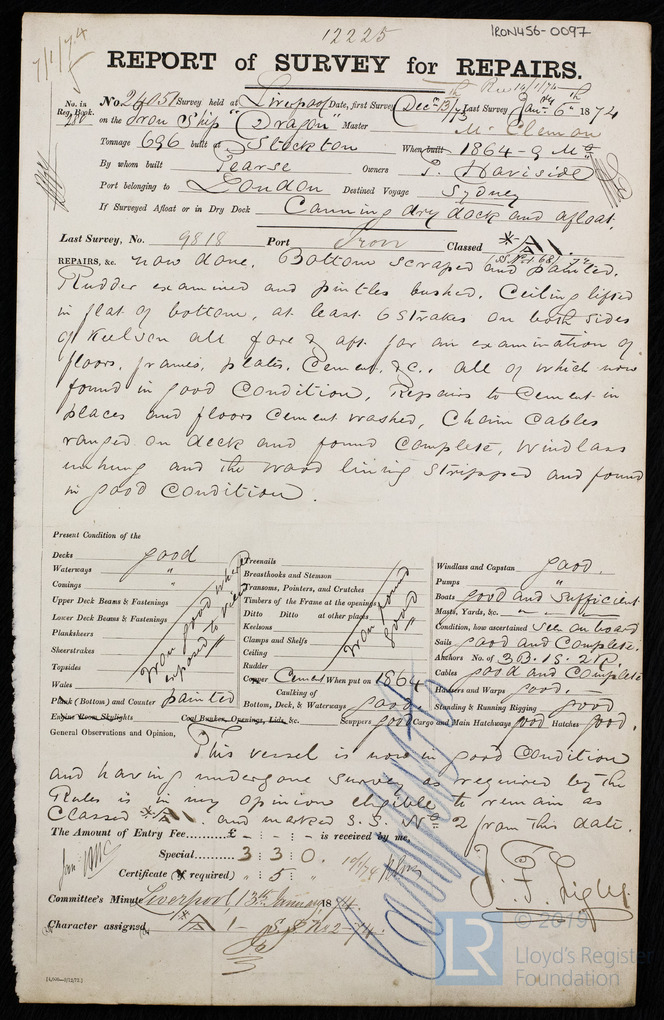 12225
IRON456-0097
7/1/74
REPORT of SURVEY for REPAIRS.
Rec 14/1/74
No. in Reg. Book. No. 24051 Survey held at Liverpool Date, first Survey Decr 13th/73 Last Survey Jany 6th 1874
280 on the Iron Ship "Dragon" Master Mc
Tonnage 696 built at Stockton When built 1864-9 Mo
By whom built Pearse Owners P. Haviside
Port belonging to London Destined Voyage Sydney
If Surveyed Afloat or in Dry Dock Canning dry dock and afloat.
Last Survey, No. 9818 Port Iron Classed A1.
REPAIRS, &c. now done. Bottom scraped and painted.
Rudder examined and pintles bushed. Ceiling lifted
in flat of bottom, at least 6 strakes on both sides
of Keelson all fore & aft. for an examination of
floors, frames, plates, Cement, &c., all of which now
found in good Condition, Repairs to Cement in
places and floors Cement washed, Chain Cables
ranged on deck and found Complete, Windlass
unhung and the wood lining stripped and found
in good Condition.
Present Condition of the
Decks good
Waterways "
Comings "
Upper Deck Beams & Fastenings
Lower Deck Beams & Fastenings
Planksheers
Sheerstrakes
Topsides
Wales
Iron good where exposed to view
Plank (Bottom) and Counter painted
Engine Room Skylights Coal Bunker, Openings, Lids, &c.
Treenails
Breasthooks and Stemson
Transoms, Pointers, and Crutches
Timbers of the Frame at the openings
Ditto Ditto at other places
Keelsons
Clamps and Shelfs
Ceiling
Rudder
Iron found good
Copper Cement When put on 1864
Caulking of
Bottom, Deck, & Waterways good
Scuppers good Cargo and Main Hatchways good Hatches good.
Windlass and Capstan good.
Pumps "
Boats good and sufficient
Masts, Yards, &c. " " "
Condition, how ascertained seen on board
Sails good and Complete.
Anchors No. of 3B. 1S. 2K.
Cables good and Complete
Hawsers and Warps good.
Standing & Running Rigging good
General Observations and Opinion,
This vessel is now in good Condition
and having undergone survey as required by the
Rules is in my opinion eligible to remain as
Classed A1. and marked S.S. No 2 from this date.
The Amount of Entry Fee £ - : - : - is received by me,
Special 3 : 3 : 0.
Certificate (if required) " : 5 : "
Committee's Minute Liverpool 13th January 1874.
Character assigned A 1 - S.S. No 2-74.
[4,000—3/12/72]
LR
© 2019
Lloyd's Register
Foundation